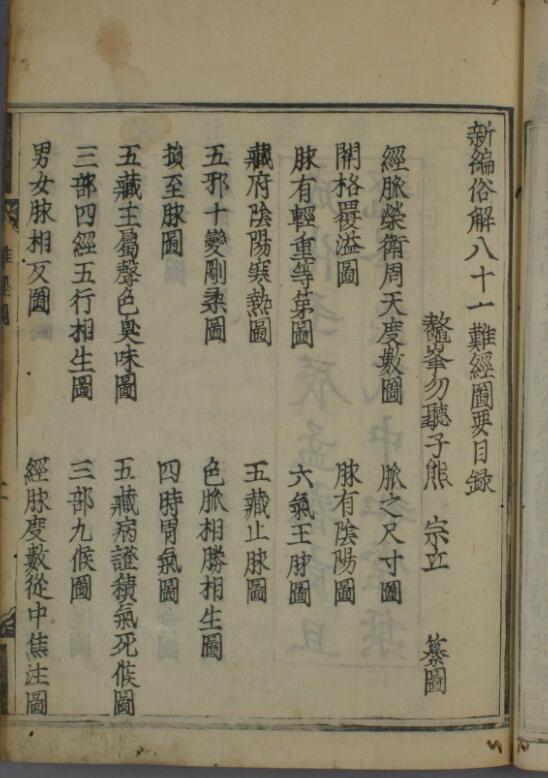 新編俗解八十一難經圖要目録
鼇峯勿聽子熊　宗立　纂圖
經脉榮衛周天度數圖　脈之尺寸圖
關格覆溢圖　脉有陰陽圖
脉有輕重等第圖　六氣王脉圖
藏府陰陽寒熱圖　五藏止脉圖
五邪十變剛柔圖　色脈相勝相生圖
損至脉圖　四時胃氣圖
五藏主屬聲色臭味圖　五藏病證積氣死候圖
三部四經五行相生圖　三部九候圖
男女脉相反圖　經脉度數從中焦注圖